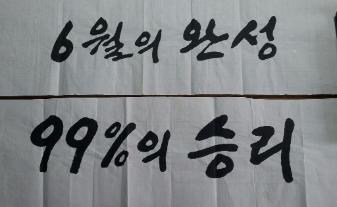 6월의 완성
99%의 승리